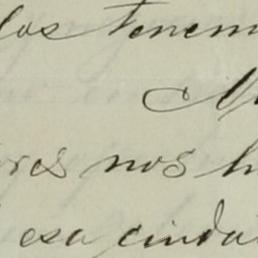 los tenem
M
ores nos h
esa ciuda